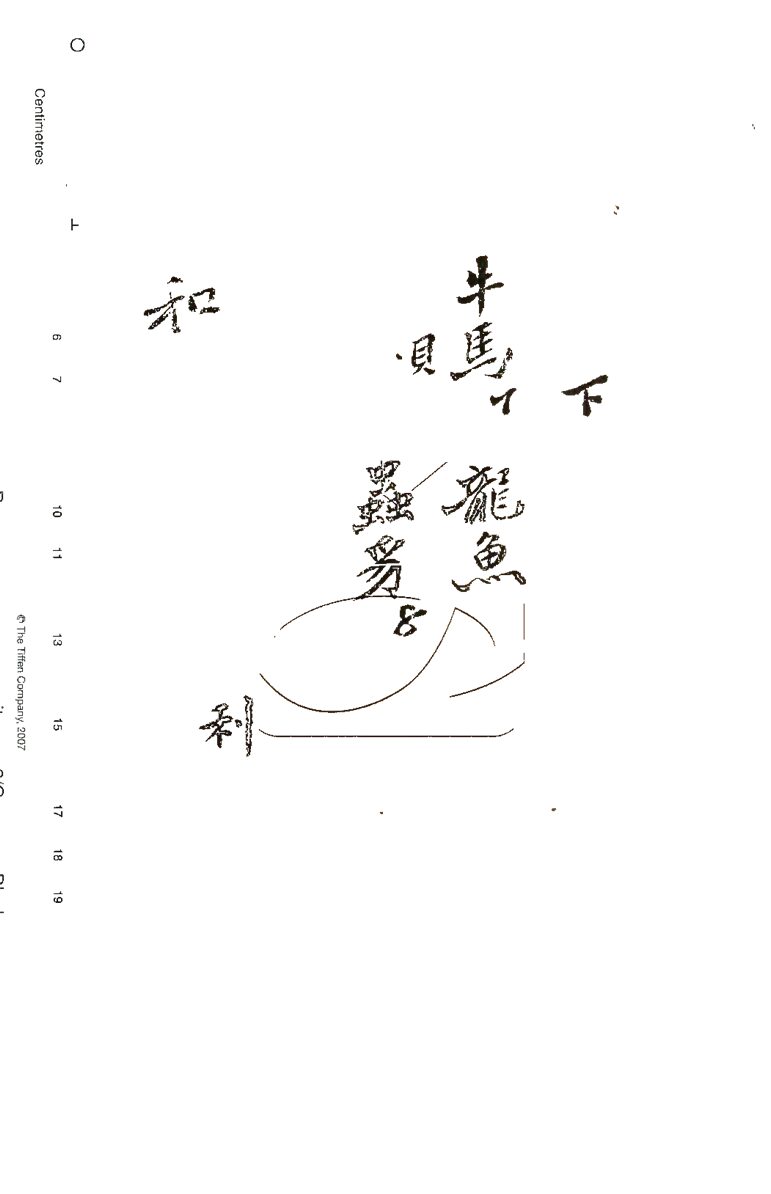 下
牛馬
龍魚
貝
蟲
和
利
Centimetres
6 7 10 11 13 15 17 18 19
© The Tiffen Company, 2007